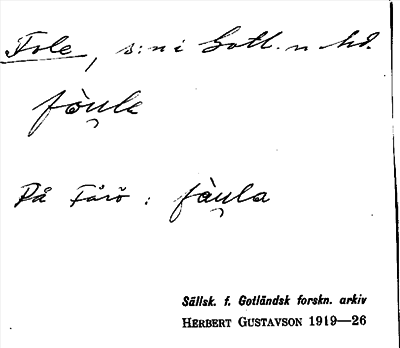 Fole, s:n i Gotl. n. hd.
fòu̯le
På Fårö: fàu̯la
Sällsk. f. Gotländsk forskn. arkiv
HERBERT GUSTAVSON 1919—26